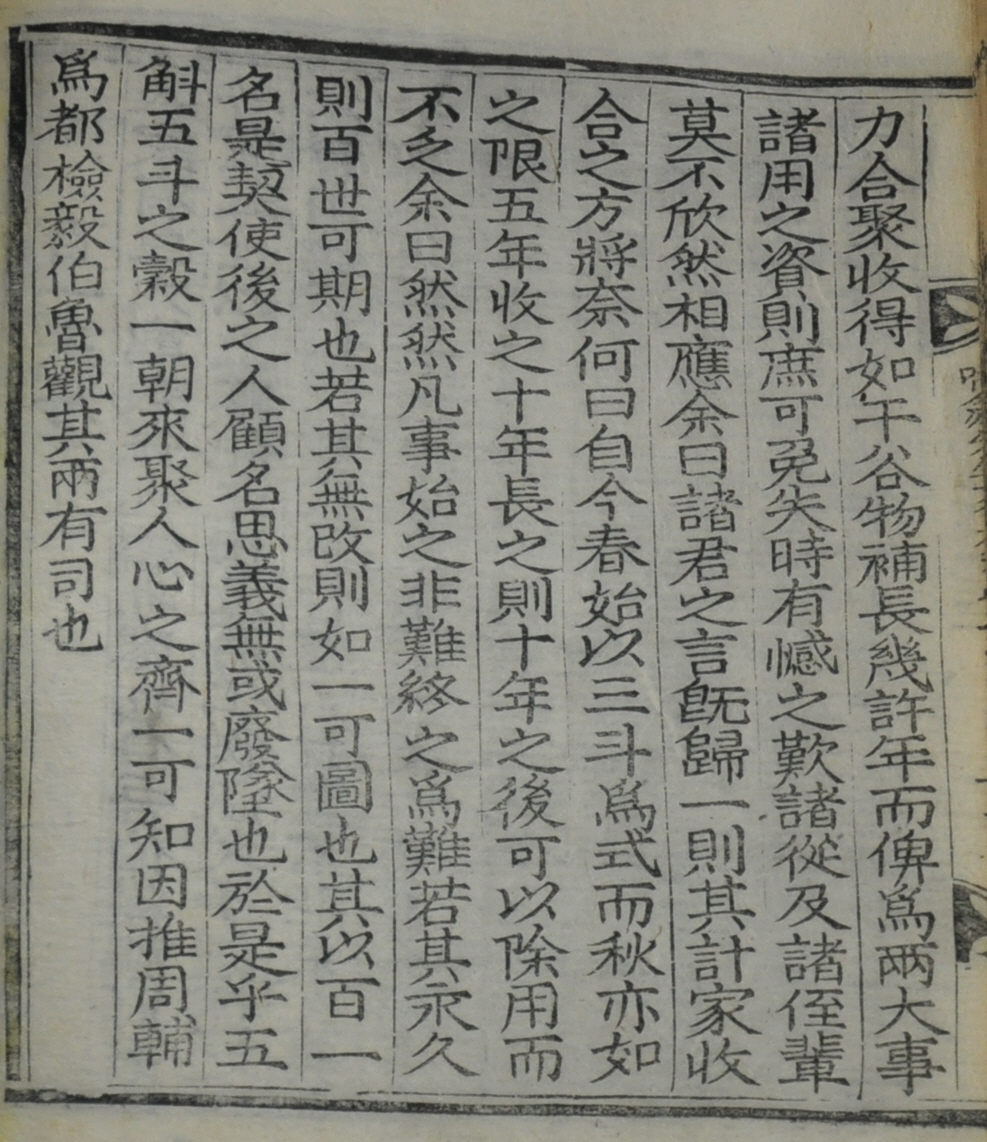 力合聚收得如干谷物補長幾許年而俾爲兩大事
諸用之資則庶可免失時有憾之歎諸從及諸侄輩
莫不欣然相應余曰諸君之言旣歸一則其計家收
合之方將奈何曰自今春始以三斗爲式而秋亦如
之限五年收之十年長之則十年之後可以除用而
不乏余曰然然凡事始之非難終之爲難若其永久
則百世可期也若其無改則如一可圖也其以百一
名是契使後之人顧名思義無或廢墜也於是乎五
斛五斗之穀一朝來聚人心之齊一可知因推周輔
爲都檢毅伯魯觀其兩有司也